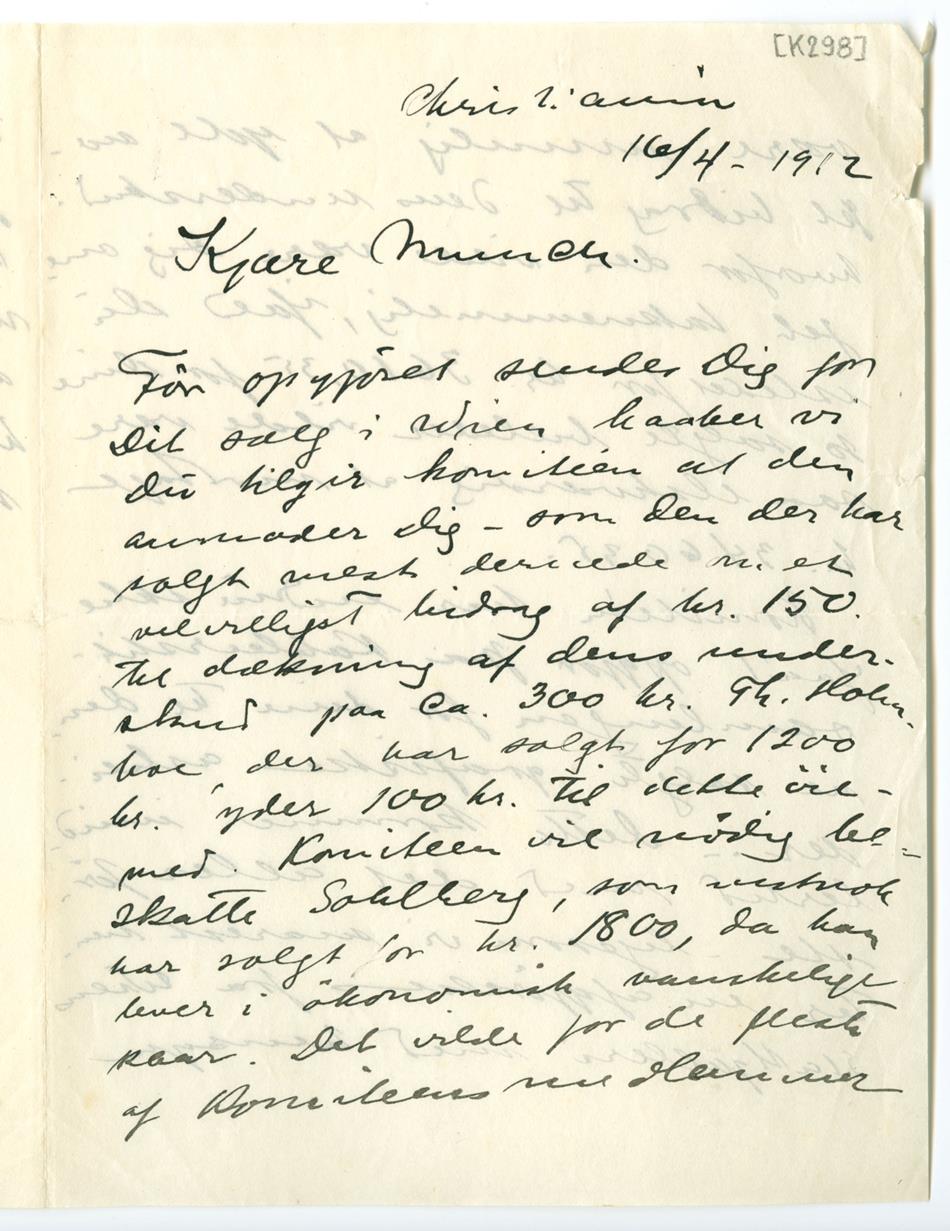 [K298]
Christiania
16/4 - 1912
Kjære Munch.
Før opgjöret sendes Dig for
Dit salg i Wien haaber vi
Du tilgir komitéen at den
anmoder Dig - som den der har
solgt mest dernede m. et
velvilligst bidrag af kr. 150.
til dækning af dens under-
skud paa ca. 300 kr. Th. Holm-
boe, der har solgt for 1200
kr. yder 100 kr. til dette öie-
med. Komiteen vil nödig be-
skatte Sohlberg, som vistnok
har solgt for kr. 1800, da han
lever i ökonomisk vanskelige
kaar. Det vilde for de fleste
af Komiteens medlemmer